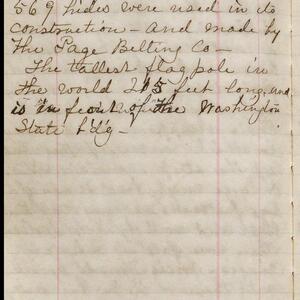 569 hides were used in its
construction - and made by
the Page Belting Co -
The tallest flagpole in
the world 215 feet long, and
is in front of the Washington
State b'd'g -